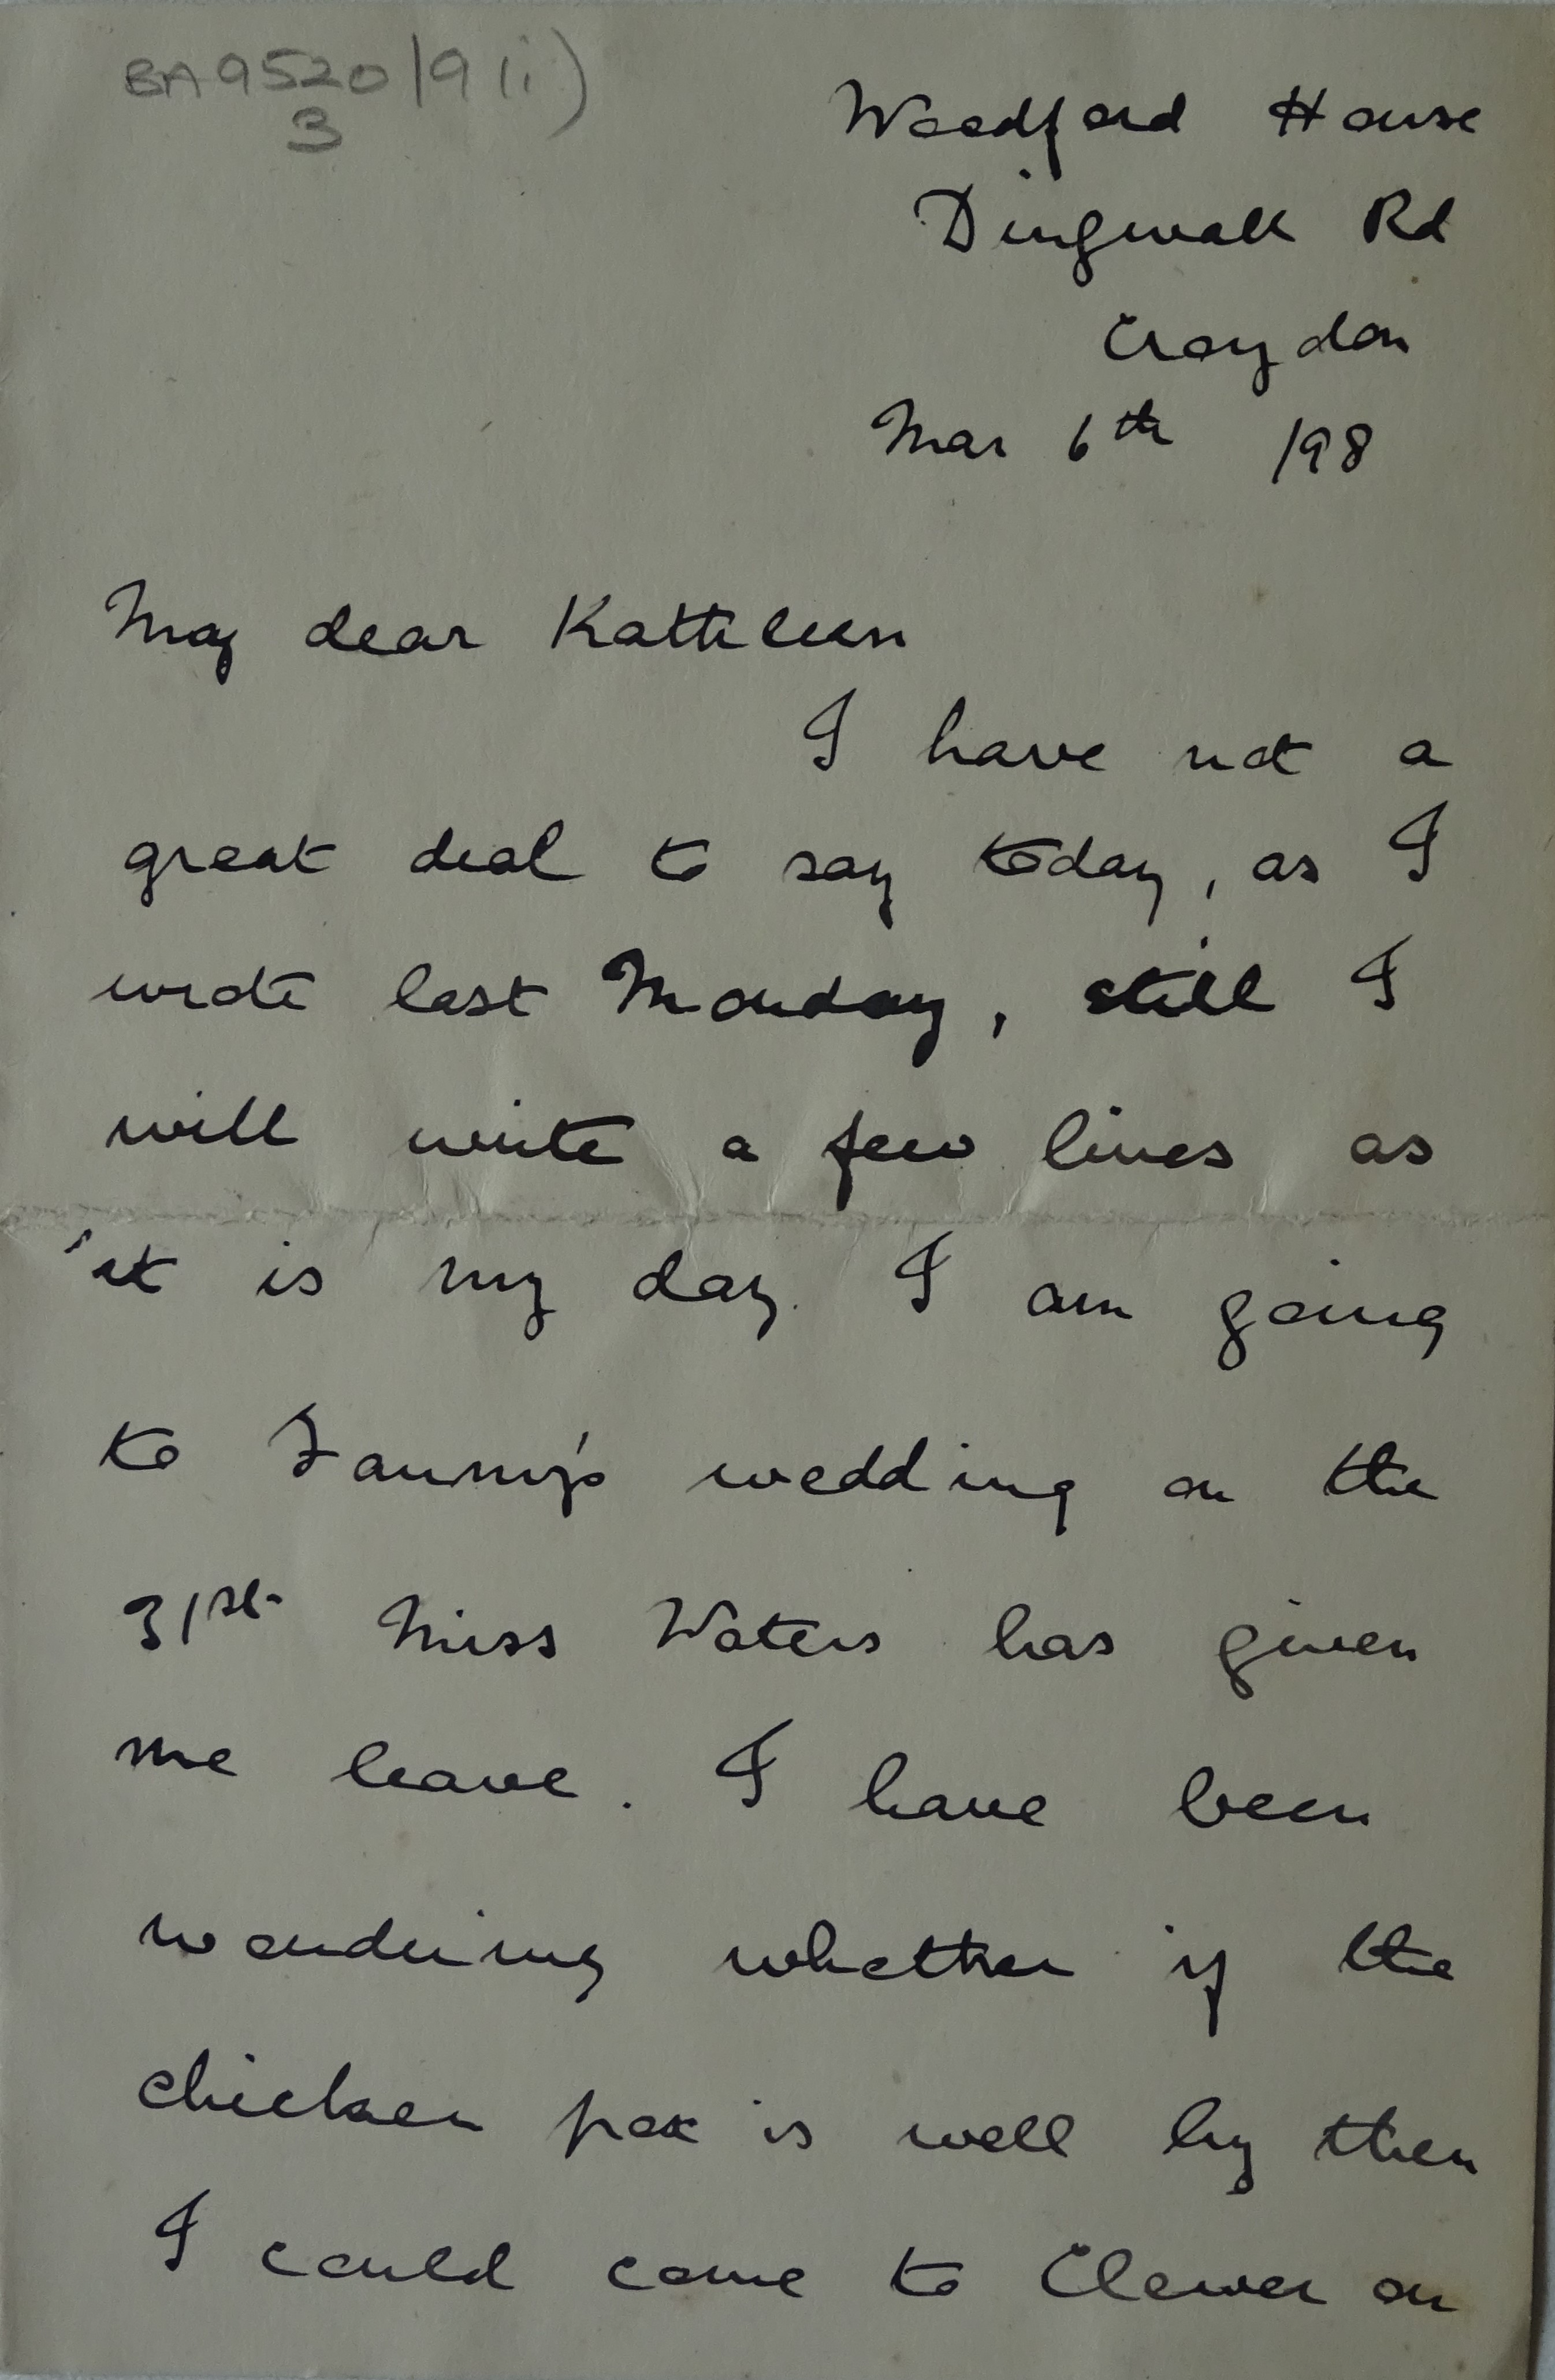 BA9520/9(i)
3
Woodford House
Dingwall Rd
Croydon
Mar 6th /98
My dear Kathleen
I have not a
great deal to say today, as I
wrote last Monday, still I
will write a few lines as
it is my day. I am going
to Fanny's wedding on the
31st Miss Waters has given
me leave. I have been
wondering whether if the
chicken pox is well by then
I could come to Clewer on